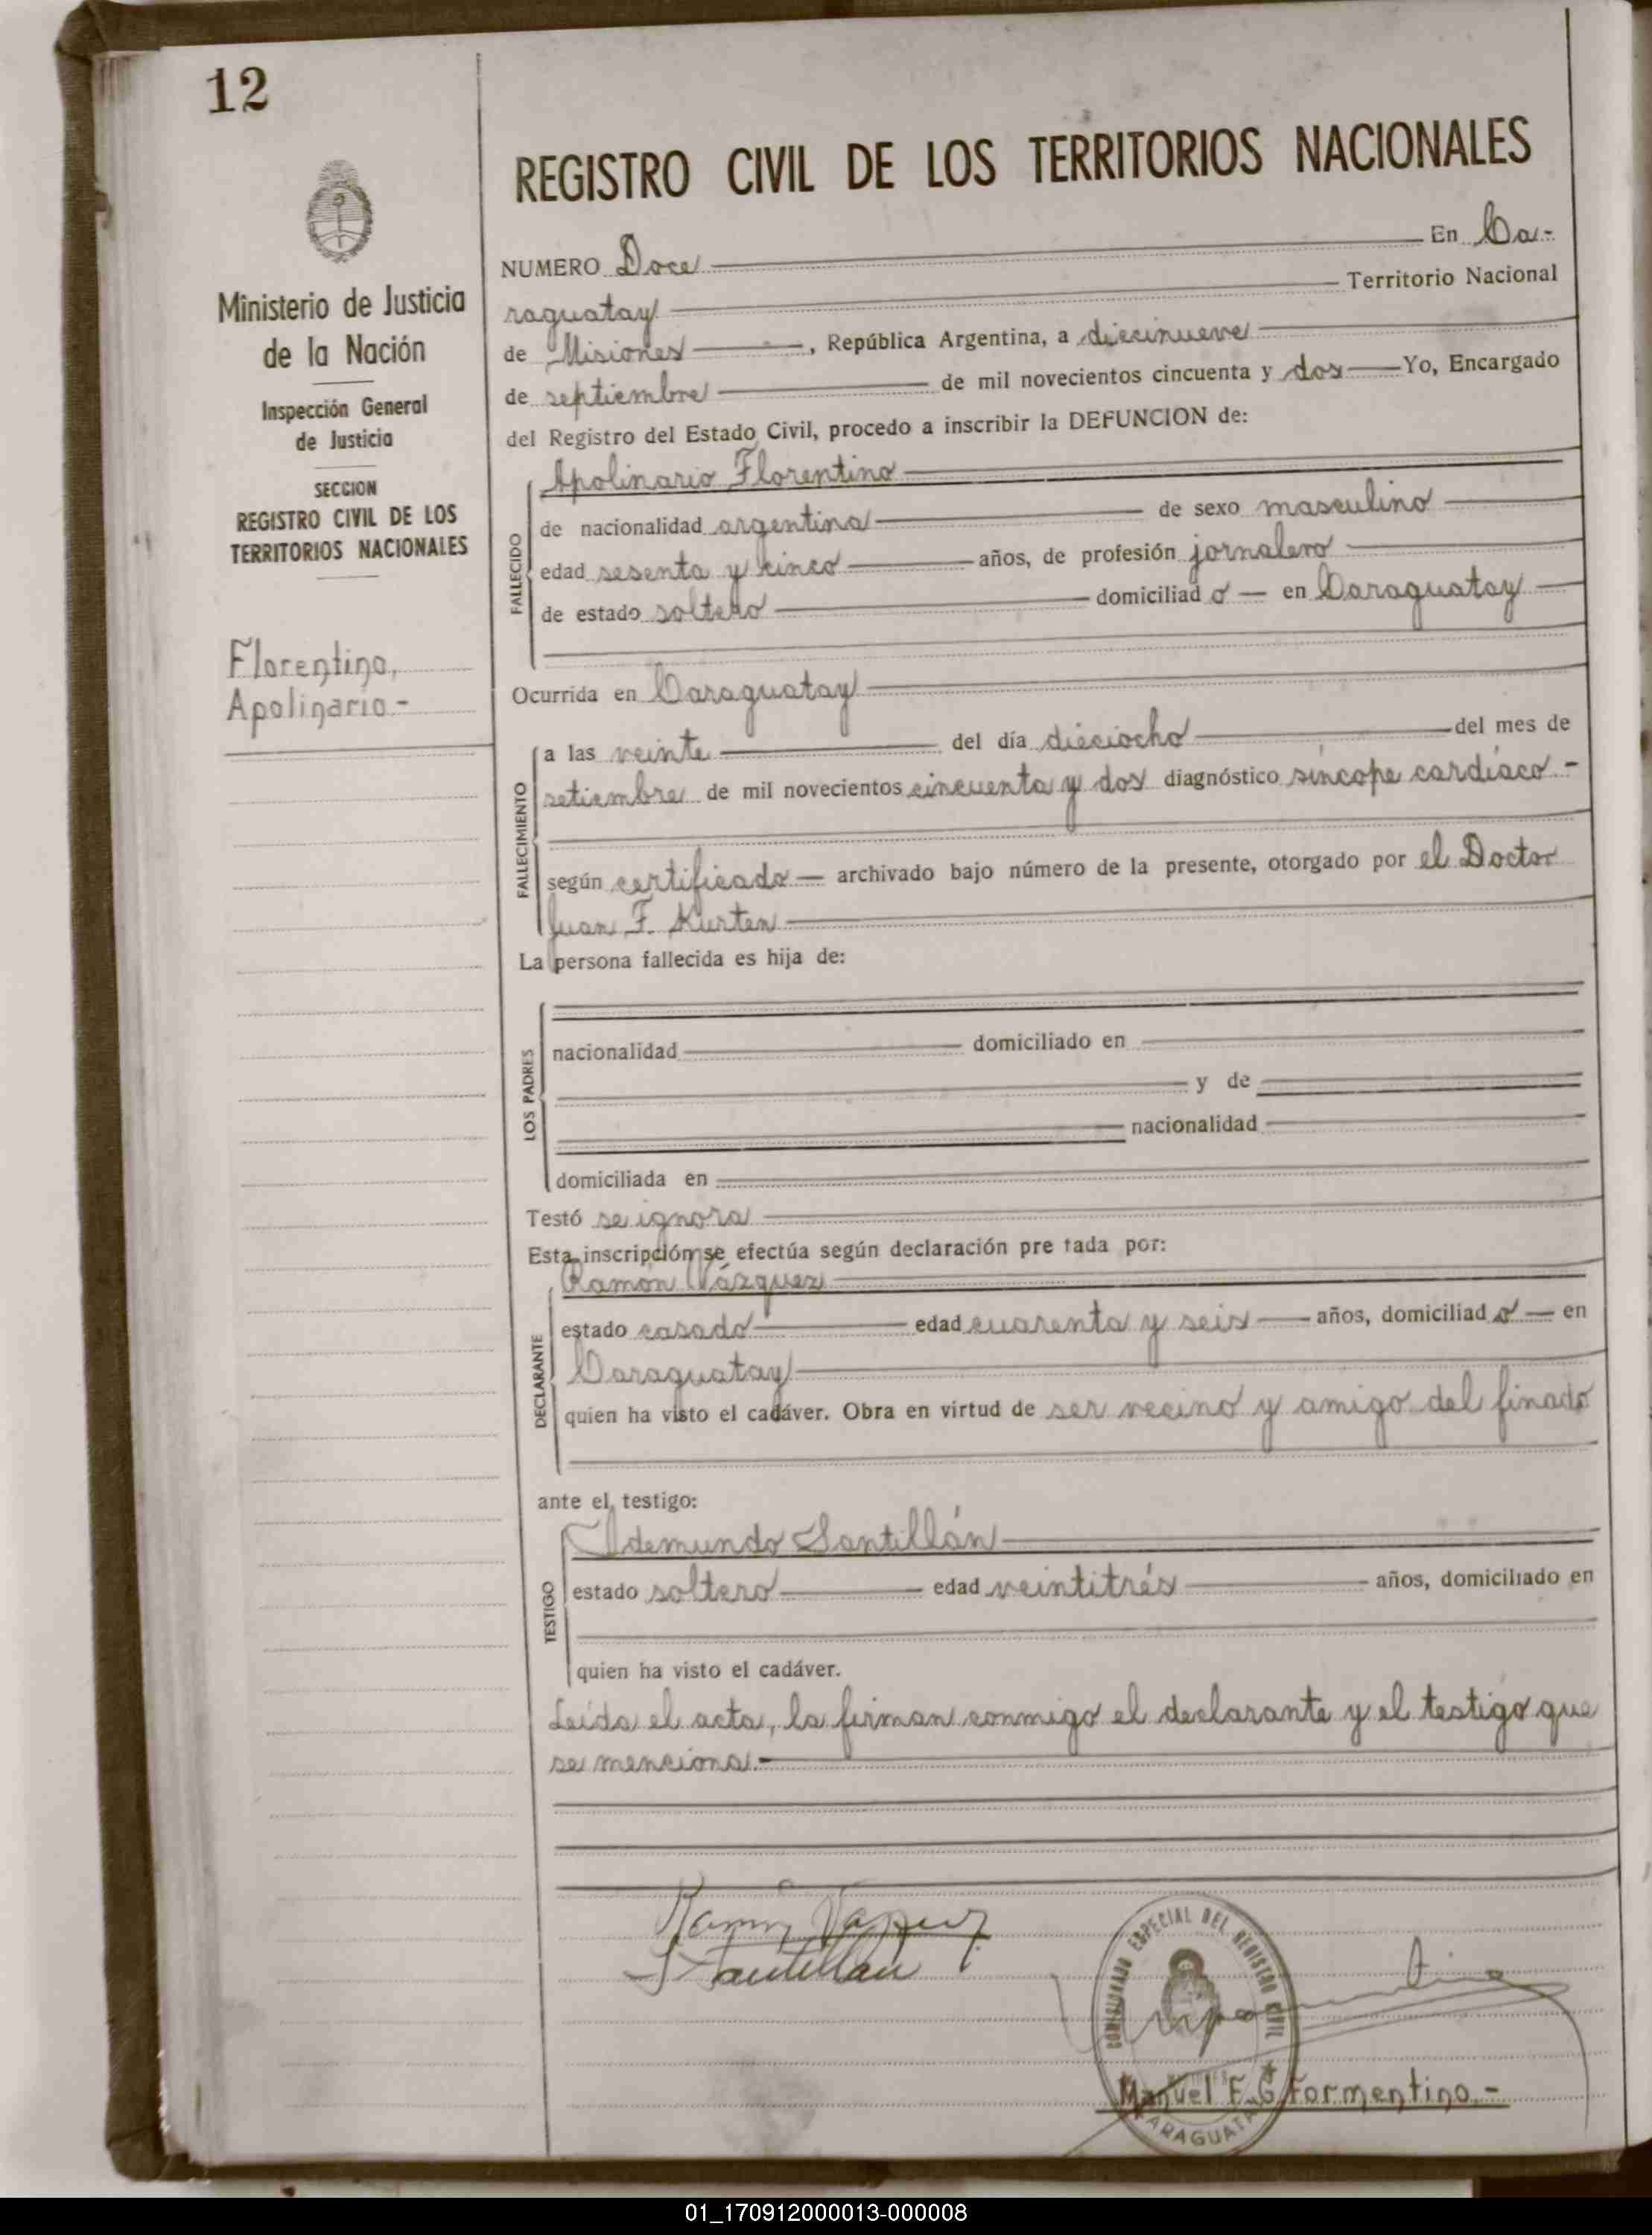 12
Ministerio de Justicia
de la Nación
Inspección General
de Justicia
SECCION
REGISTRO CIVIL DE LOS
TERRITORIOS NACIONALES
Florentino,
Apolinario.-
REGISTRO CIVIL DE LOS TERRITORIOS NACIONALES
NUMERO Doce En Ca-
raguatay Territorio Nacional
de Misiones, República Argentina, a diecinueve
de septiembre de mil novecientos cincuenta y dos Yo, Encargado
del Registro del Estado Civil, procedo a inscribir la DEFUNCION de:
FALLECIDO
Apolinario Florentino
de nacionalidad argentina de sexo masculino
edad sesenta y cinco años, de profesión jornalero
de estado soltero domiciliad o en Caraguatay
Ocurrida en Caraguatay
FALLECIMIENTO
a las veinte del día dieciocho del mes de
setiembre de mil novecientos cincuenta y dos diagnóstico síncope cardíaco -
según certificado archivado bajo número de la presente, otorgado por el Doctor
Juan F. Kurten
La persona fallecida es hija de:
LOS PADRES
nacionalidad domiciliado en
y de
nacionalidad
domiciliada en
Testó se ignora
Esta inscripción se efectúa según declaración pre tada por:
DECLARANTE
Ramón Vázquez
estado casado edad cuarenta y seis años, domiciliad o en
Caraguatay
quien ha visto el cadáver. Obra en virtud de ser vecino y amigo del finado
ante el testigo:
TESTIGO
Ildemundo Santillán
estado soltero edad veintitrés años, domiciliado en
quien ha visto el cadáver.
Leída el acta, la firman conmigo el declarante y el testigo que
se menciona.-
Ramón Vazquez
Santillan
COMISIONADO ESPECIAL DEL REGISTRO CIVIL
Manuel F. G. Formentino.-
CARAGUATAY
01_170912000013-000008